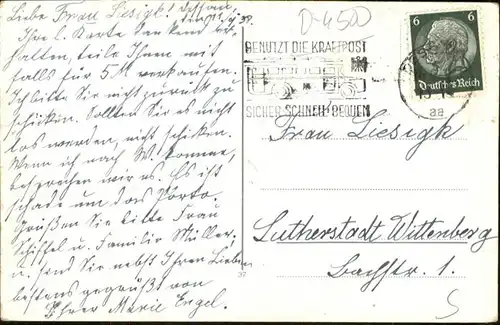 Liebe Frau Liesigk! Dessau,
Ihre l. Karte dankend er-
halten, teile Ihnen mit
falls für 5 M verkaufen.
Ich bitte Sie nicht zurück zu
schicken. Sollten Sie es nicht
los werden, nicht schicken.
Wenn ich nach W. komme,
besprechen wir es. Es ist
schade um das Porto.
Grüßen Sie bitte Frau
Schiffel u. Familie Müller.
u. sind Sie nebst Ihren Lieben
bestens gegrüßt von
Ihrer Marie Engel.
37
D-4500
BENUTZT DIE KRAFTPOST
SICHER SCHNELL BEQUEM
6 6
Deutsches Reich
aa
Frau Liesigk
Lutherstadt Wittenberg
Bachstr. 1.
5